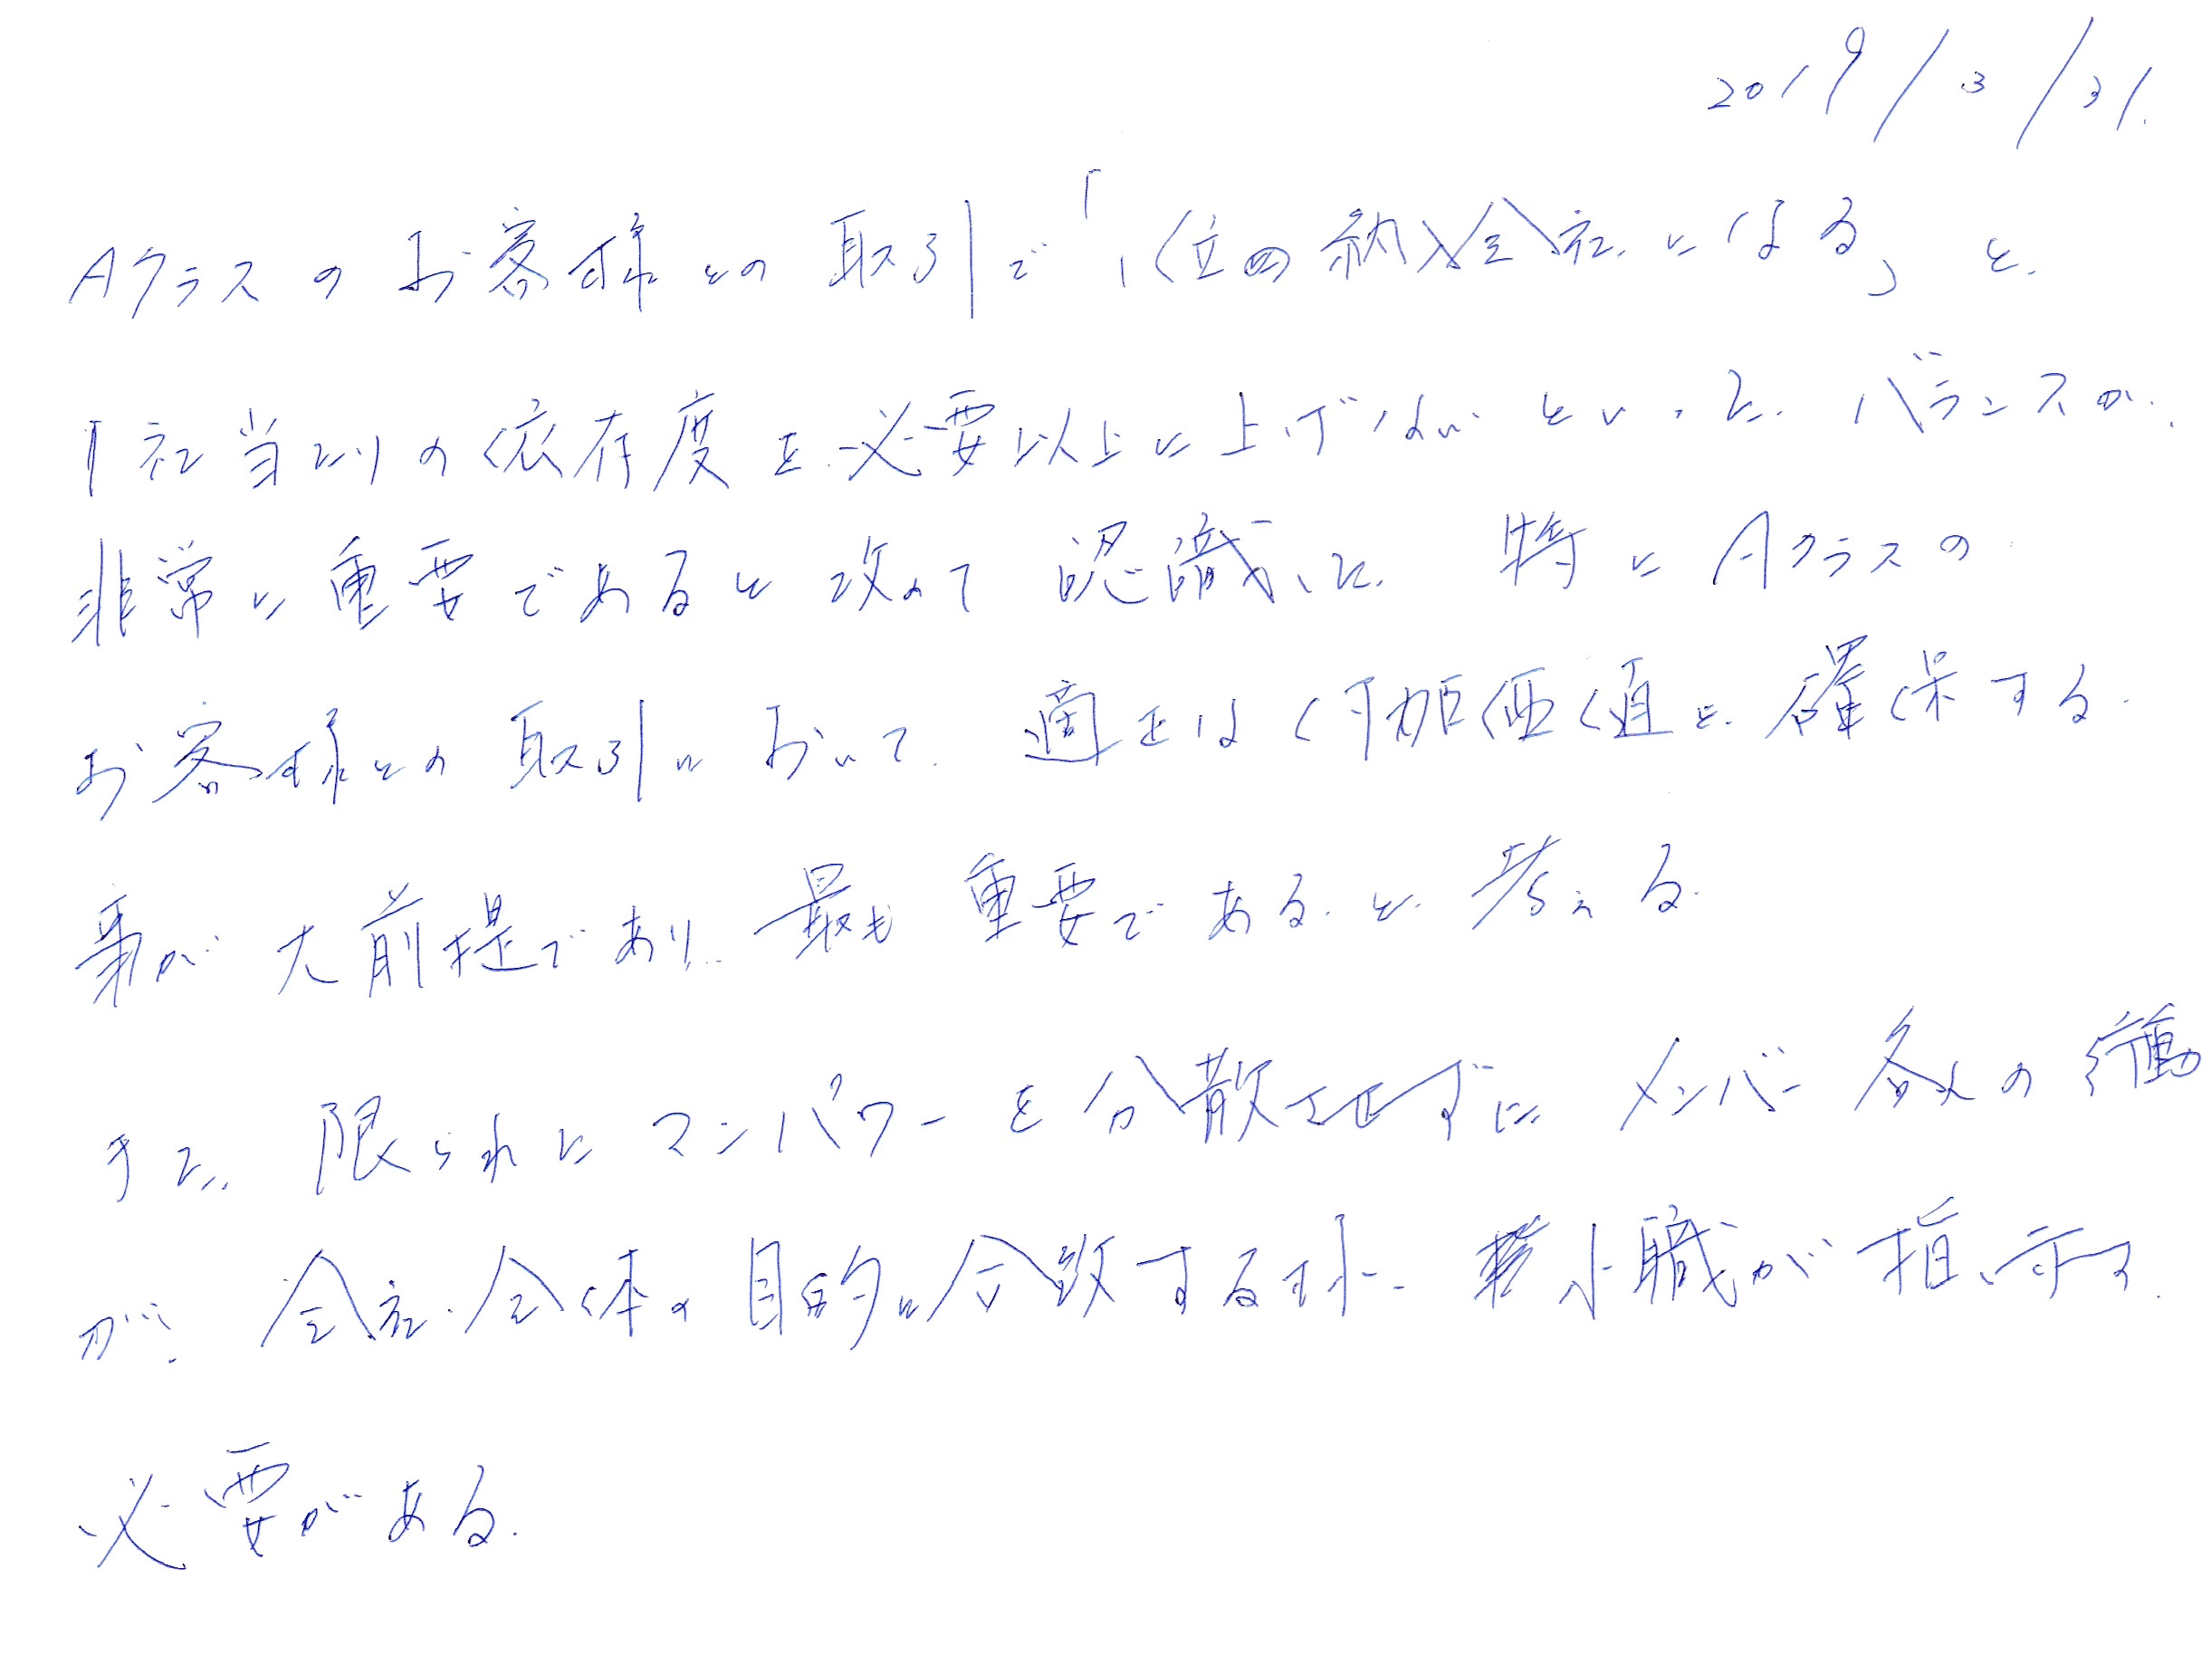 2019/3/31.
Aクラスのお客様との取引で「1位の納入会社になる」と、
1社当たりの依存度を必要以上に上げないといった、バランスが、
非常に重要であると改めて認識した。特にAクラスの
お客様との取引において、適正な付加価値を、確保する
事が大前提であり、最も重要であると考える。
また、限られたマンパワーを分散させずに、メンバー各人の行動
が、会社全体の目的に合致する様に、職が指示する
必要がある。